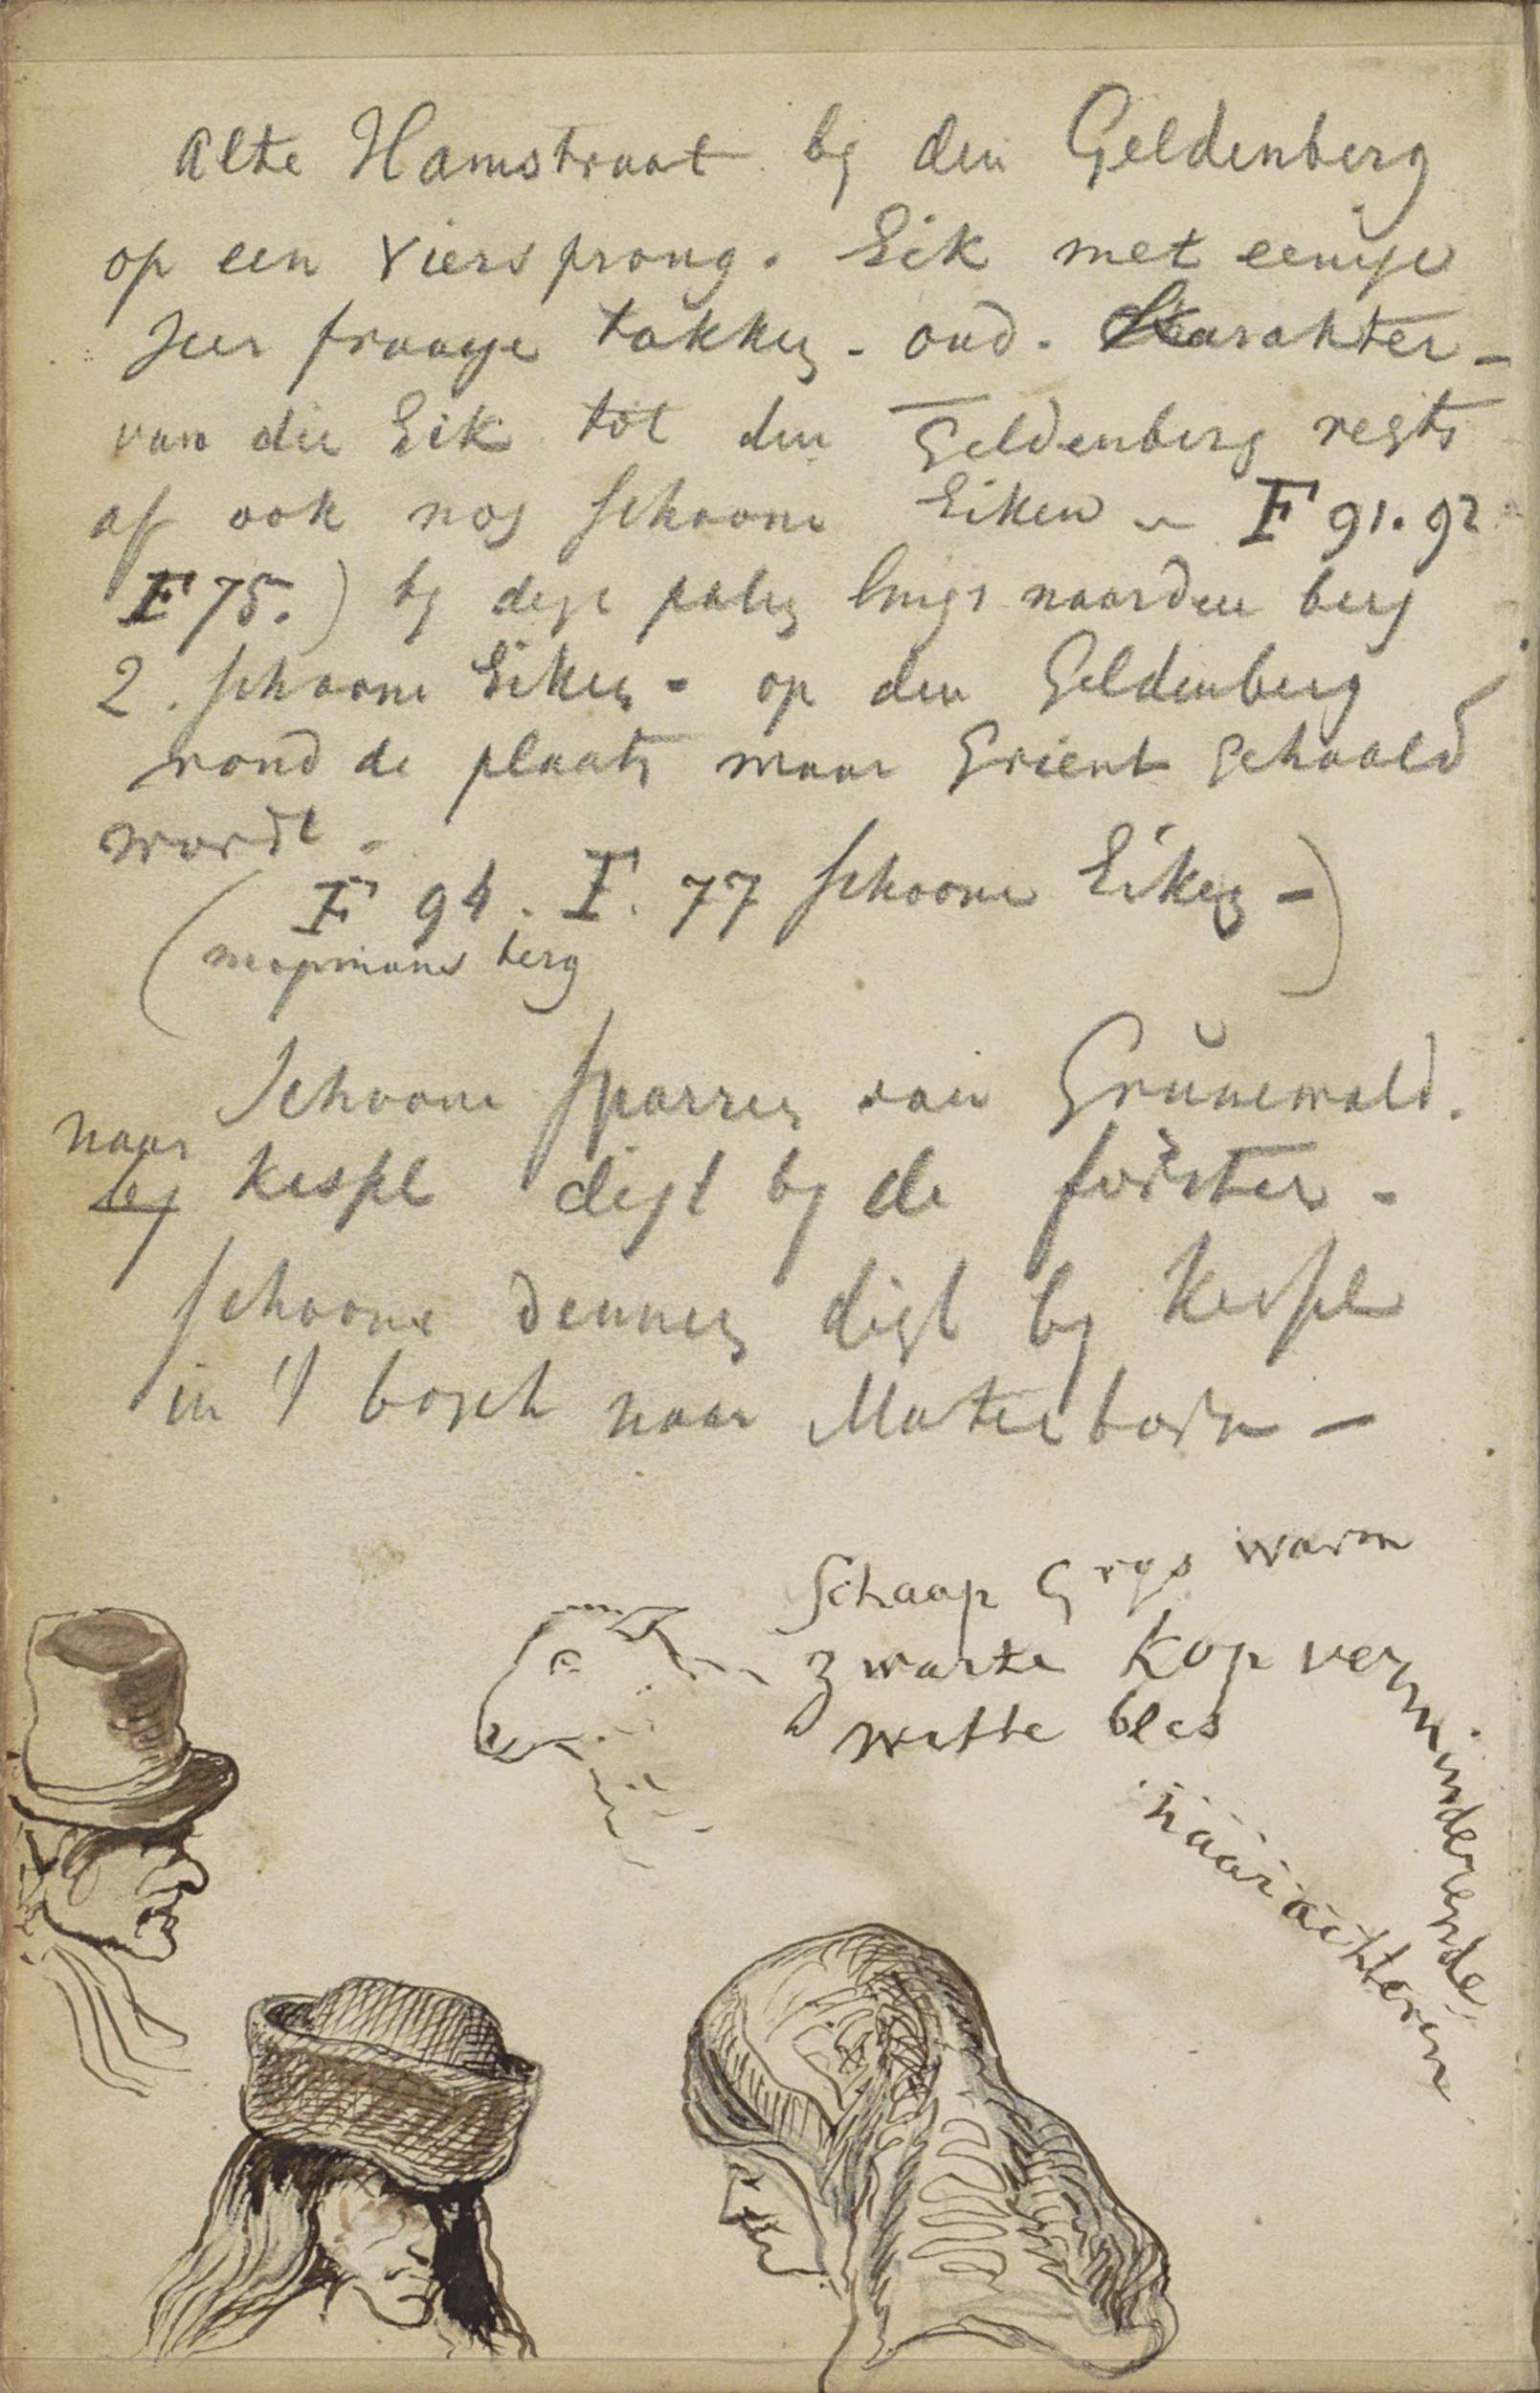 Alte Hamstraat by den Geldenberg
op een viersprong. Eik met eenige
zeer fraaye takken - oud. Karakter -
van die Eik tot den Geldenberg regts
af ook nog schoone Eiken - F 91. 92
F 75.) by deze palen langs naar den berg
2. schoone Eiken - op den Geldenberg
rond de plaats waar Grient gehaald
wordt -
( F 94. F. 77 schoone Eiken - )
berg
Schoone Sparren van Grünewald.
naar
by Kespe digt by de förster -
schoone dennen digt by Kespe
in 't bosch naar Materborn -
Schaap Grys warm
zwarte kop verminderende
witte bles
naar achteren